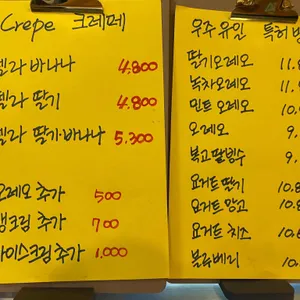 Crepe 크레페
텔라 바나나 4.800
텔라 딸기 4.800
텔라 딸기·바나나 5.300
오레오 추가 500
생크림 추가 700
아이스크림 추가 1.000
우주 유인 특허 빙
딸기오레오 11.
녹차오레오 11.
민트 오레오 10.
오레오 9.
복고 팥빙수 9.
요거트 딸기 10.
요거트 망고 10.
요거트 치즈 10.
블루베리 10.